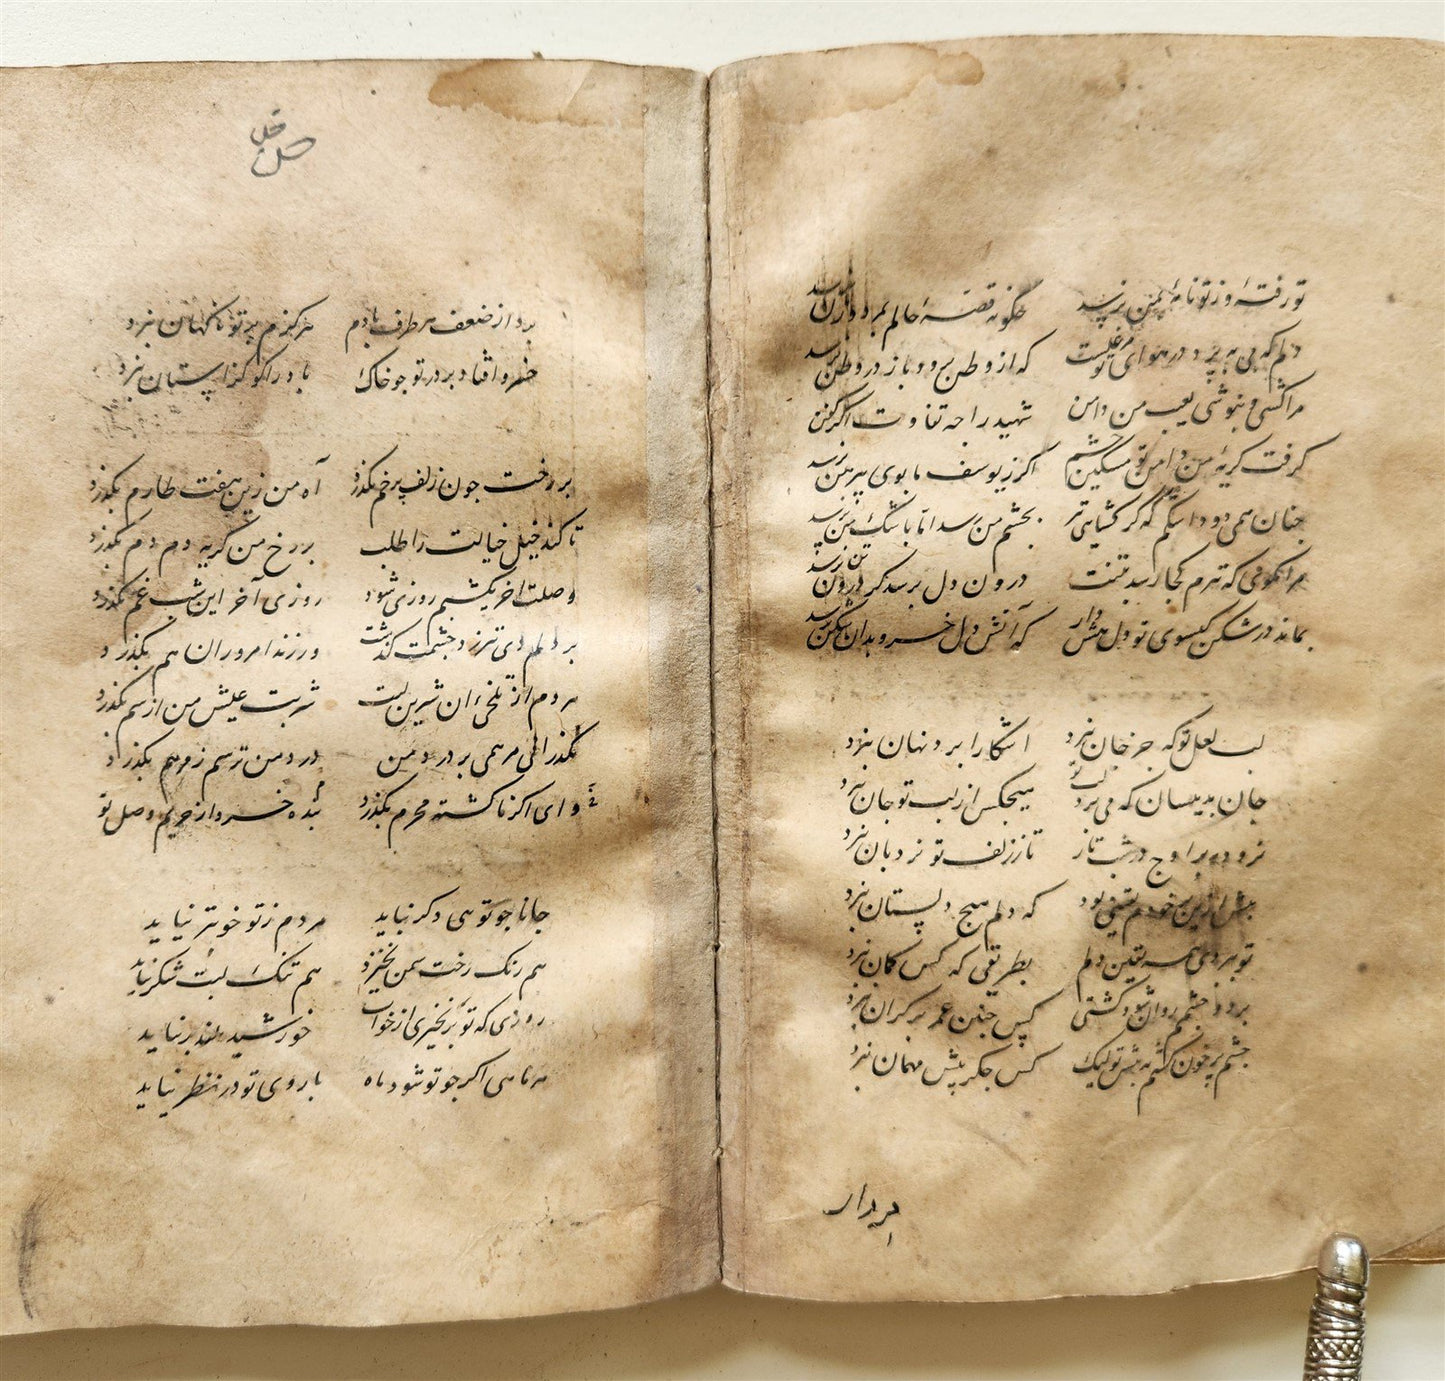 تو رفتهٔ و ز تو نامهٔ بمن نرسد چگونه قصهٔ حالم بمرد و زن نرسد
دلم که می بپرد در هوای تو مرغیست که از وطن برود و باز در وطن نرسد
مرا کشی و بپوشی بعیب من دامن شهید را چه تفاوت اگر کفن
گرفت گریهٔ من دامن تو مسکین چشم اگر ز یوسف ما بوی پیرهن نرسد
چنان همی دود اشکم که گر کشایی تر بچشم من برسد اما باشک من نرسد
مرا نکوئی که تیرم کجا رسد بتنت درون دل برسد گر درون تن نرسد
بماند در شکن گیسوی تو دل هش دار که آتش دل خسرو بدان شکن نرسد
لب لعل تو که جز جان نبرد آشکارا برد نهان نبرد
جان بدینسان که می برد لب تو هیچکس از لب تو جان نبرد
نرود بر اوج در شب تار تا ز زلف تو نردبان نبرد
پیش ازین خودم یقینی بود که دلم هیچ دلستان نبرد
تو ببردی همه یقین دلم بطریقی که کس کمان نبرد
برود چشم روان شود کشتی کس چنین عمر بر کران نبرد
چشم پر خون کشم به پیش تو لیک کس جگر پیش مهمان نبرد
برد از
حسن قلی
برد از ضعف هر طرف بادم هرگزم بر تو ناگهان نبرد
خسرو افتاد بر در تو چو خاک باد را کو کز آستان نبرد
بر رخت چون زلف پر خم بگذرد آه من زین هفت طارم بگذرد
تا کند خیل خیالت را طلب بر رخ من گریه دم دم بگذرد
وصلت آخر یکشبم روزی شود روزی آخر این شب غم بگذرد
بر دلم دی تیر زد چشمت گذشت ور زند امروز آن هم بگذرد
مردم از تلخیٔ آن شیرین لبت شربت عیش من از سم بگذرد
بگذر الهی مرهمی بر درد من درد من ترسم ز مرهم بگذرد
وای اگر ناگشته محرم بگذرد بنده خسرو از حریم وصل تو
جانا چو تویی دگر نیاید مردم ز تو خوبتر نیاید
همرنگ رخت سمن نخیزد هم تنگ لبت شکر نیاید
روزی که تو برنخیزی از خواب خورشید بلند بر نیاید
مه نامی اگر چو تو شود ماه با روی تو در نظر نیاید